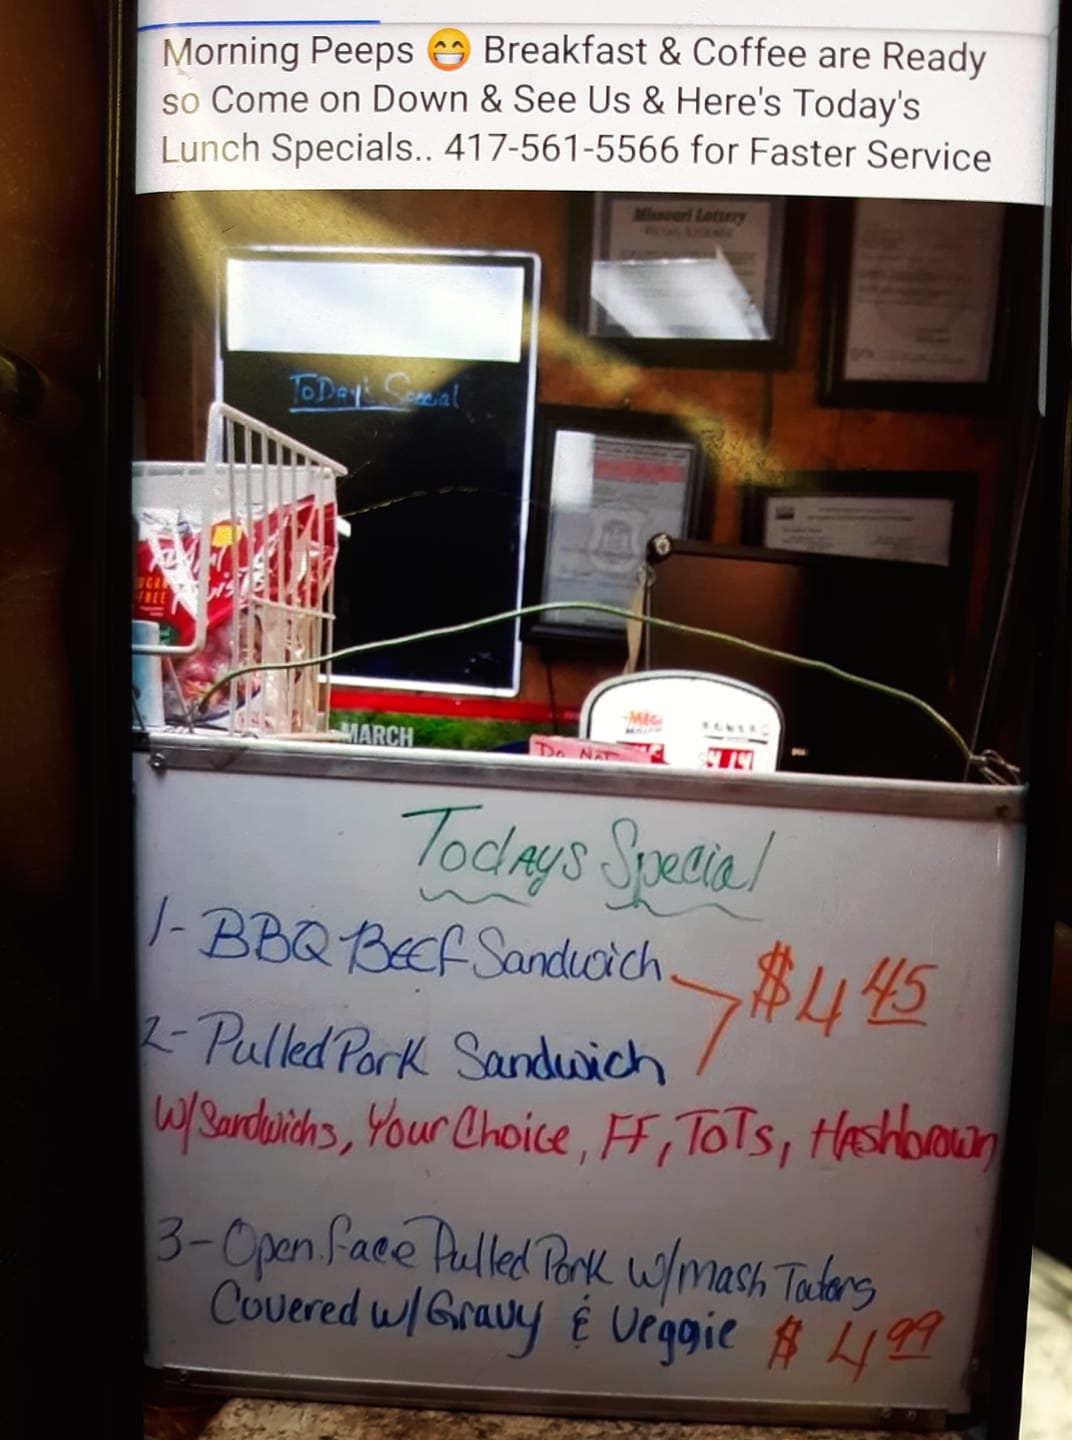 Morning Peeps 😁 Breakfast & Coffee are Ready
so Come on Down & See Us & Here's Today's
Lunch Specials.. 417-561-5566 for Faster Service
Missouri Lottery
ToDay's Special
MARCH
Do Not
Todays Special
1- BBQ Beef Sandwich
$4 45
2- Pulled Pork Sandwich
W/Sandwichs, Your Choice, FF, ToTs, Hashbrown
3- Open face Pulled Pork w/mash Taters
Covered w/Gravy & Veggie $ 4 99